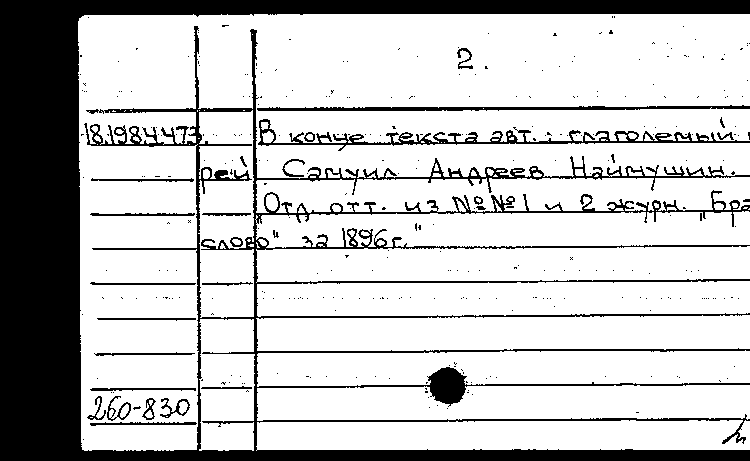 2.
18.1984473. В конце текста авт.: глаголемый
рей Самуил Андреев Наймушин.
„Отд. отт. из №№1 и 2 журн. „Бра
слово" за 1896г."
260-830